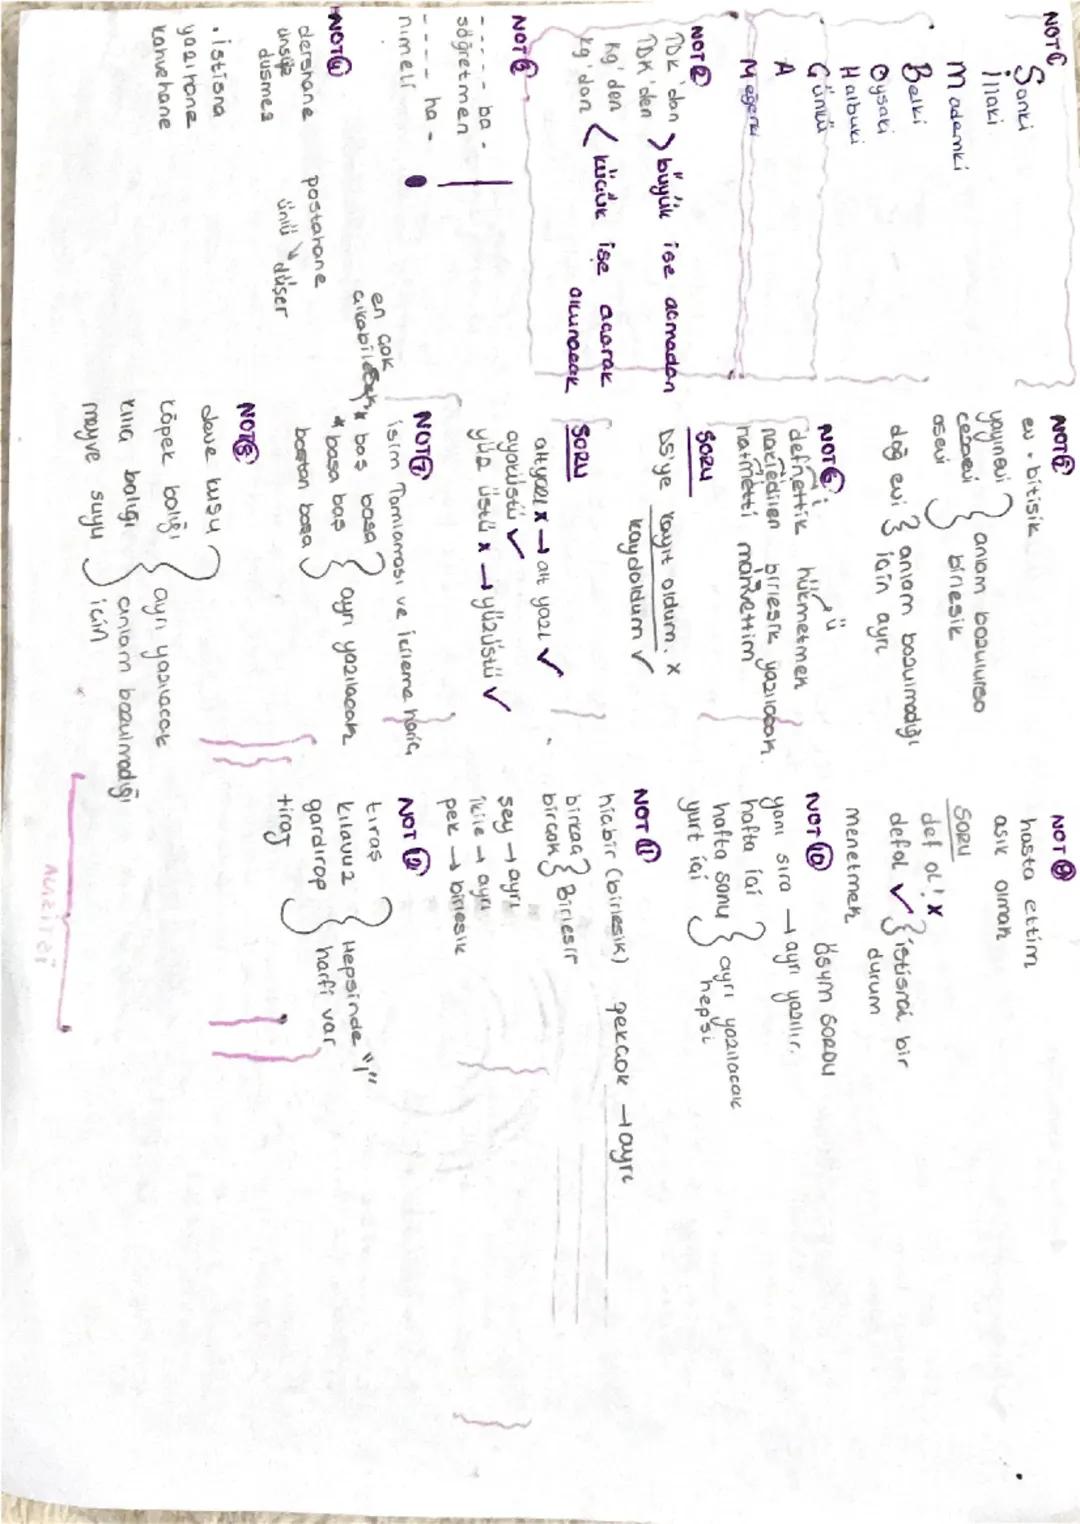 NOT①
Sanki
illaki
Mademki
Belki
Oysaki
Halbuki
Günkü
A
Meğerki
NOT②
TDK'dan
TDK'den
büyük ise açmadan
Kg'den
kg'dan
küçük ise açarak
okunacak
NOT③
----- ba-
söğretmen
---- ha-
nimeli
NOT④
dershane
ünsüz
düşmez
postahane
ünlü
düşer
• istisna
yazıhane
kahvehane
NOT⑤
ev - bitişik
yayınevi
cezaevi
aşevi
anlam bozulursa
birleşik
doğ evi
anlam bozulmadığı
için ayrı
NOT⑥
defnettik
hükmetmek
ü
nakledilen
birleşik yazılacak.
hatmetti
SORU
DS'ye kayıt oldum. x
kaydoldum ✓
SORU
altyazı x → alt yazı ✓
ayaküstü ✓
yüz üstü x → yüzüstü ✓
NOT⑦
isim Tamlaması ve ikileme hariç
en çok
çıkabilecek
* baş başa
* başa baş
baştan başa
ayrı yazılacak
NOT⑧
deve kuşu
köpek balığı
kılıç balığı
meyve suyu
ayrı yazılacak
anlam bozulmadığı
için
NOT⑨
hasta ettim
aşık olmak
SORU
def ol! x
defol ✓
istisnai bir
durum
menetmek
NOT⑩
ösym SORDU
yanı sıra → ayrı yazılır.
hafta içi
hafta sonu
yurt içi
ayrı yazılacak
hepsi
NOT⑪
hiçbir (birleşik)
pekçok → ayrı
birkaç
birçok
Birleşir
şey → ayrı
ikile → ayrı
pek → birleşik
NOT⑫
tıraş
kılavuz
gardırop
tiraj
Hepsinde "ı"
harfi var